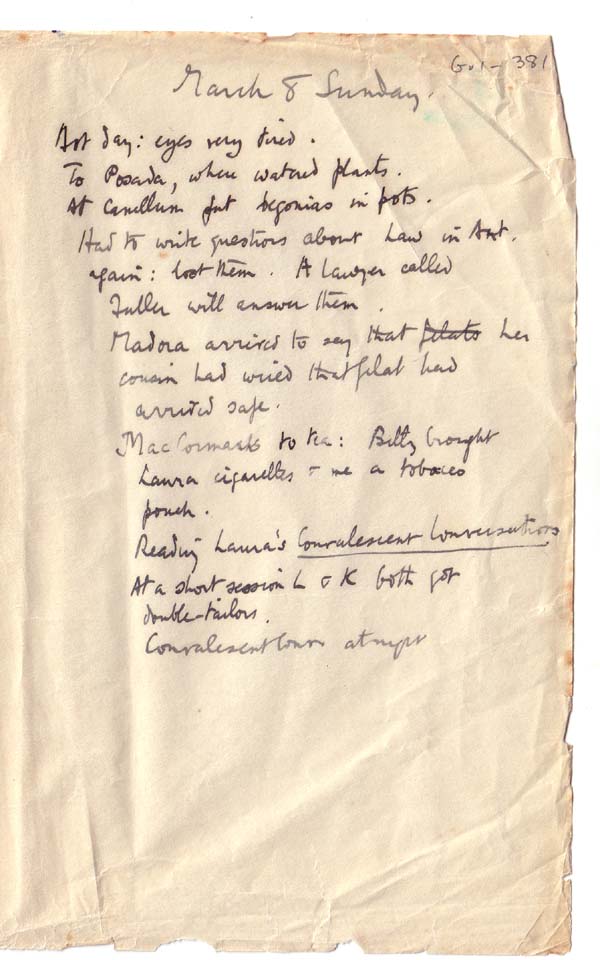 Gv1-381
March 8 Sunday.
Hot day: eyes very tired.
To Posada, where watered plants.
At Canellum put begonias in pots.
Had to write questions about Law in Ant.
again: lost them. A Lawyer called
Fuller will answer them.
Madora arrived to say that pilato her
cousin had wired that pilat had
arrived safe.
MacCormacks to tea: Billy brought
Laura cigarettes & me a tobacco
pouch.
Reading Laura's Convalescent Conversations
At a short session L & K both got
double-tailors.
Convalescent Conv at night